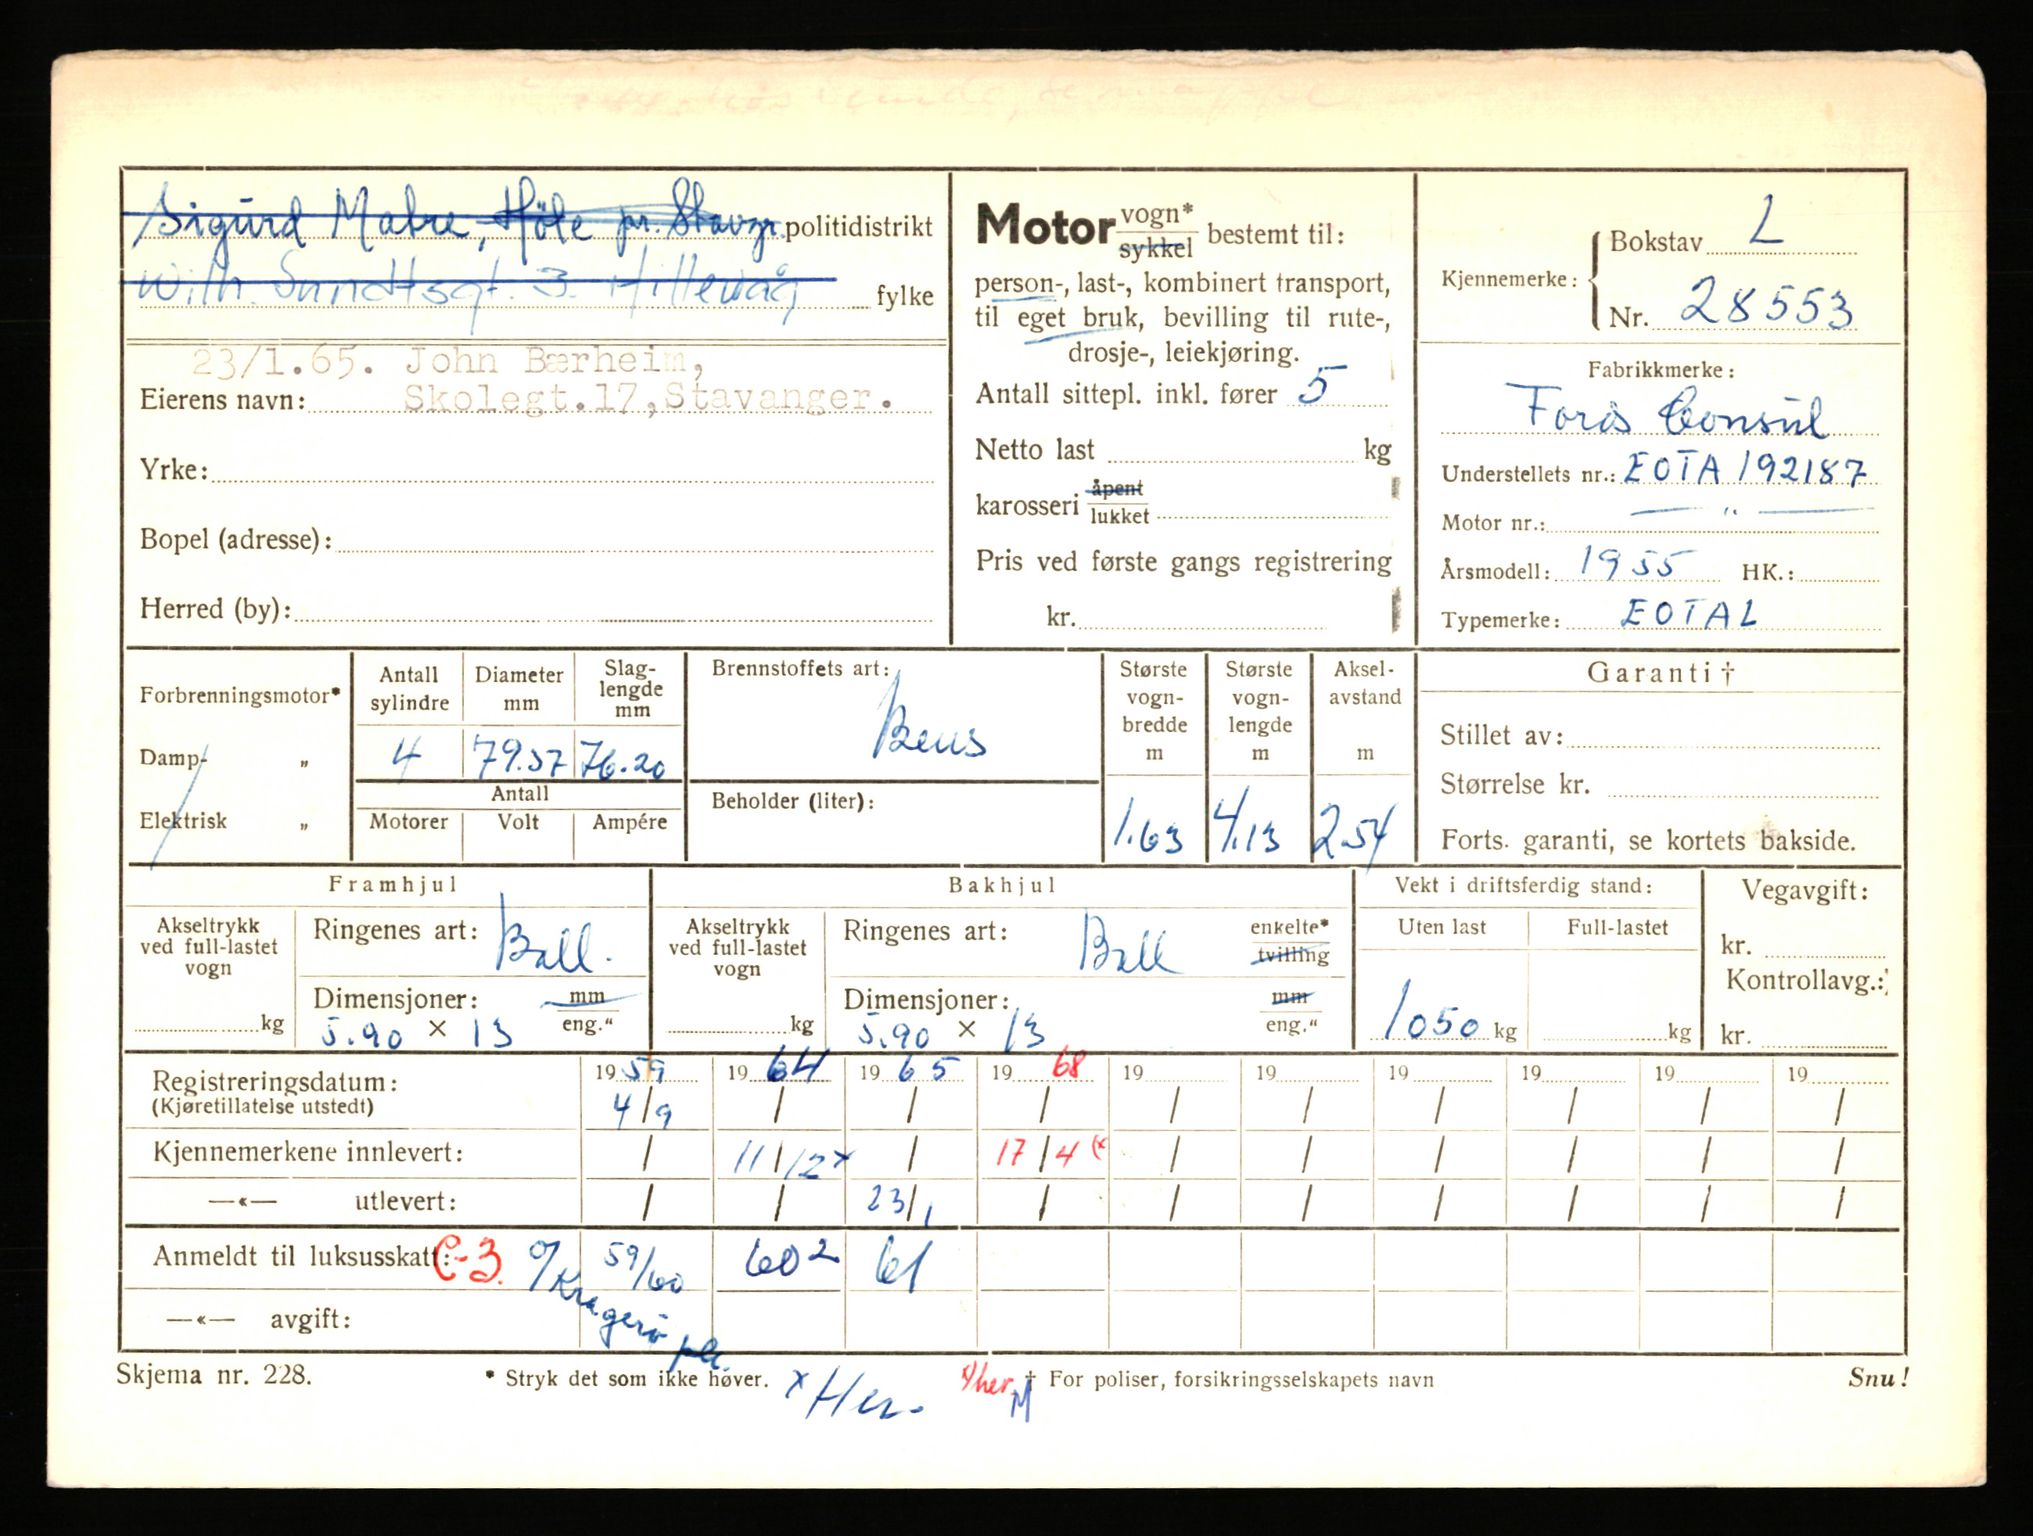 Sigurd Mabre, Höle pr. Stavgr. politidistrikt
Wilh. Sundtsgt. 3. Hillevåg fylke
23/1.65. John Bærheim,
Eierens navn: Skolegt.17, Stavanger.
Yrke:
Bopel (adresse):
Herred (by):
Motor vogn* sykkel bestemt til:
person-, last-, kombinert transport,
til eget bruk, bevilling til rute-,
drosje-, leiekjøring.
Antall sittepl. inkl. fører 5
Netto last kg
karosseri åpent lukket
Pris ved første gangs registrering
kr.
Kjennemerke: Bokstav L
Nr. 28553
Fabrikkmerke:
Ford Consul
Understellets nr.: EOTA 192187
Motor nr.: — " —
Årsmodell: 1955 HK.:
Typemerke: EOTAL
Forbrenningsmotor*
Damp- „
Elektrisk „
Antall sylindre
4
Diameter mm
79.37
Slag-lengde mm
76.20
Antall
Motorer Volt Ampére
Brennstoffets art:
Bens
Beholder (liter):
Største vogn-bredde m
1.63
Største vogn-lengde m
4.13
Aksel-avstand m
2.54
Garanti †
Stillet av:
Størrelse kr.
Forts. garanti, se kortets bakside.
Framhjul
Akseltrykk ved full-lastet vogn
kg
Ringenes art: Ball.
Dimensjoner: mm
5.90 × 13 eng."
Bakhjul
Akseltrykk ved full-lastet vogn
kg
Ringenes art: Ball enkelte* tvilling
Dimensjoner: mm
5.90 × 13 eng."
Vekt i driftsferdig stand:
Uten last Full-lastet
1050 kg kg
Vegavgift:
kr.
Kontrollavg.:
kr.
Registreringsdatum: 1959 1964 1965 1968 19 19 19 19 19 19
(Kjøretillatelse utstedt) 4/9 / / / / / / / / /
Kjennemerkene innlevert: / 11/12 x / 17/4 (x / / / / / /
—«— utlevert: / / 23/1 / / / / / / /
Anmeldt til luksusskatt: C-3. 59/60 60 2 61
o/ Kragerö pk.
—«— avgift:
Skjema nr. 228. * Stryk det som ikke høver. x Her. x/her. M † For poliser, forsikringsselskapets navn Snu!